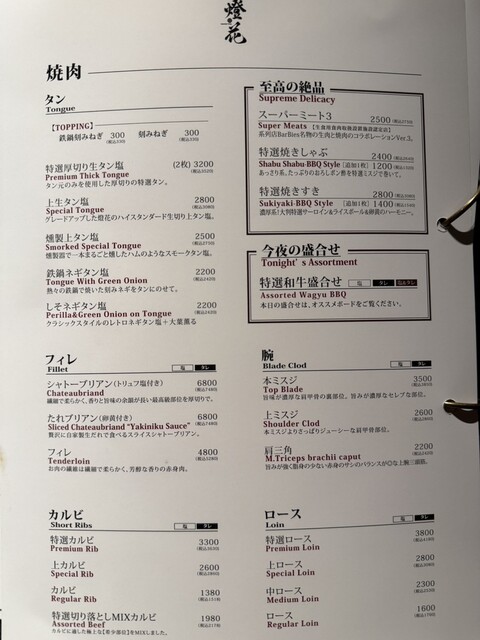 燈花
焼肉
タン
Tongue
【TOPPING】
鉄鍋刻みねぎ 300 刻みねぎ 300
(税込330) (税込330)
特選厚切り生タン塩 (2枚) 3200
Premium Thick Tongue (税込3520)
タン元のみを使用した厚切りの特選タン。
上生タン塩 2800
Special Tongue (税込3080)
グレードアップした燈花のハイスタンダード生切り上タン塩。
燻製上タン塩 2500
Smorked Special Tongue (税込2750)
燻製器で一本まるごと燻したハムのようなスモークタン塩。
鉄鍋ネギタン塩 2200
Tongue With Green Onion (税込2420)
熱々の鉄鍋で焼いた刻みネギをタンにのせて。
しそネギタン塩 2200
Perilla&Green Onion on Tongue (税込2420)
クラシックスタイルのレトロネギタン塩+大葉薫る
至高の絶品
Supreme Delicacy
スーパーミート3 2500 (税込2750)
Super Meats
系列店BarBies名物の生肉と焼肉のコラボレーションVer.3。
特選焼きしゃぶ 2400 (税込2640)
Shabu Shabu-BBQ Style 【追加1枚】 1200 (税込1320)
あっさり系、たっぷりのおろしポン酢を特選ミスジで巻いて。
特選焼きすき 2800 (税込3080)
Sukiyaki-BBQ Style 【追加1枚】 1400 (税込1540)
濃厚系!大判特選サーロイン&ライスボール&卵黄のハーモニー。
今夜の盛合せ
Tonight's Assortment
特選和牛盛合せ 塩 タレ 塩&タレ
Assorted Wagyu BBQ
本日の盛合せは、オススメボードをご覧ください。
フィレ 塩 タレ
Fillet
シャトーブリアン(トリュフ塩付き) 6800
Chateaubriand (税込7480)
繊細で柔らかく、香りと旨味の余韻が長い最高級部位を厚切りで。
たれブリアン(卵黄付き) 6800
Sliced Chateaubriand “Yakiniku Sauce” (税込7480)
贅沢に自家製生だれで食べるスライスシャトーブリアン。
フィレ 4800
Tenderloin (税込5280)
お肉の繊維は繊細で柔らかく、芳醇な香りの赤身肉。
腕 塩 タレ
Blade Clod
本ミスジ 3500
Top Blade (税込3850)
旨味が濃厚な肩甲骨の裏部位。旨みが濃厚なセレブな部位。
上ミスジ 2600
Shoulder Clod (税込2860)
本ミスジよりさっぱりジューシーな肩甲骨部位。
肩三角 2200
M.Triceps brachii caput (税込2420)
旨みが強く脂身の少ない赤身のサシのバランスが◎な上腕三頭筋。
カルビ 塩 タレ
Short Ribs
特選カルビ 3300
Premium Rib (税込3630)
上カルビ 2600
Special Rib (税込2860)
カルビ 1380
Regular Rib (税込1518)
特選切り落としMIXカルビ 1980
Assorted Beef (税込2178)
カルビに適した極上な【希少部位】をMIXしました。
ロース 塩 タレ
Loin
特選ロース 3800
Premium Loin (税込4180)
上ロース 2800
Special Loin (税込3080)
中ロース 2300
Medium Loin (税込2530)
ロース 1600
Regular Loin (税込1760)